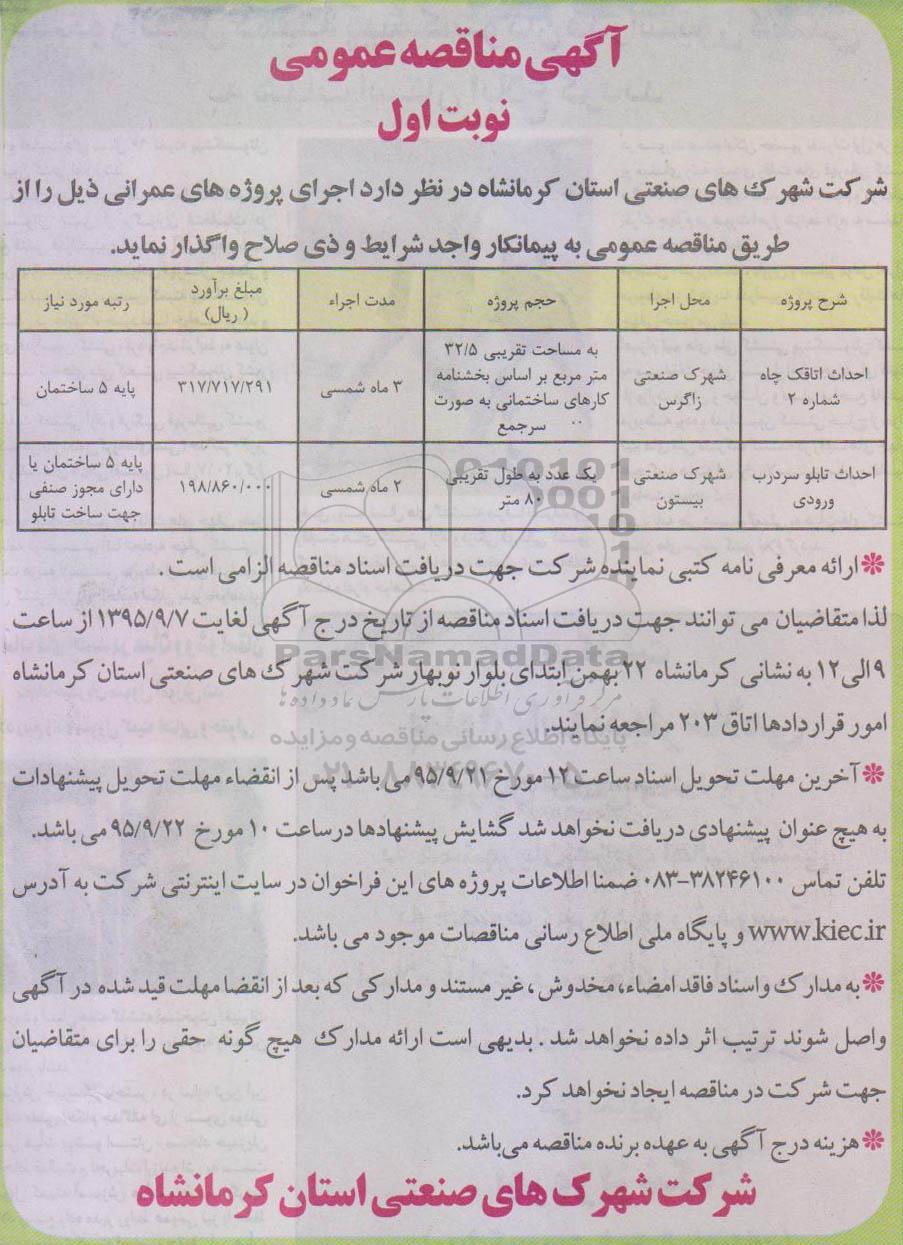 آگهی مناقصه عمومی
نوبت اول
شرکت شهرک های صنعتی استان کرمانشاه در نظر دارد اجرای پروژه های عمرانی ذیل را از
طریق مناقصه عمومی به پیمانکار واجد شرایط و ذی صلاح واگذار نماید.
شرح پروژه	محل اجرا	حجم پروژه	مدت اجراء	مبلغ برآورد (ریال)	رتبه مورد نیاز
احداث اتاقک چاه شماره ۲	شهرک صنعتی زاگرس	به مساحت تقریبی ۳۲/۵ متر مربع بر اساس بخشنامه کارهای ساختمانی به صورت سرجمع	۳ ماه شمسی	۳۱۷/۷۱۷/۲۹۱	پایه ۵ ساختمان
احداث تابلو سردرب ورودی	شهرک صنعتی بیستون	یک عدد به طول تقریبی ۸۰ متر	۲ ماه شمسی	۱۹۸/۸۶۰/۰۰۰	پایه ۵ ساختمان یا دارای مجوز صنفی جهت ساخت تابلو
*ارائه معرفی نامه کتبی نماینده شرکت جهت دریافت اسناد مناقصه الزامی است .
لذا متقاضیان می توانند جهت دریافت اسناد مناقصه از تاریخ درج آگهی لغایت ۱۳۹۵/۹/۷ از ساعت
۹ الی ۱۲ به نشانی کرمانشاه ۲۲ بهمن ابتدای بلوار نوبهار شرکت شهرک های صنعتی استان کرمانشاه
امور قراردادها اتاق ۲۰۳ مراجعه نمایند.
*آخرین مهلت تحویل اسناد ساعت ۱۲ مورخ ۹۵/۹/۲۱ می باشد پس از انقضاء مهلت تحویل پیشنهادات
به هیچ عنوان پیشنهادی دریافت نخواهد شد گشایش پیشنهادها در ساعت ۱۰ مورخ ۹۵/۹/۲۲ می باشد.
تلفن تماس ۳۸۲۴۶۱۰۰-۰۸۳ ضمنا اطلاعات پروژه های این فراخوان در سایت اینترنتی شرکت به آدرس
www.kiec.ir و پایگاه ملی اطلاع رسانی مناقصات موجود می باشد.
*به مدارک و اسناد فاقد امضاء، مخدوش ، غیر مستند و مدارکی که بعد از انقضا مهلت قید شده در آگهی
واصل شوند ترتیب اثر داده نخواهد شد . بدیهی است ارائه مدارک هیچ گونه حقی را برای متقاضیان
جهت شرکت در مناقصه ایجاد نخواهد کرد.
*هزینه درج آگهی به عهده برنده مناقصه می باشد.
شرکت شهرک های صنعتی استان کرمانشاه
ParsNamadData
مرکز فرآوری اطلاعات پارس نماد داده ها
پایگاه اطلاع رسانی مناقصه و مزایده